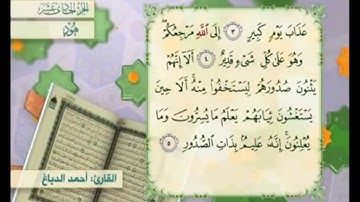 الجزء الحادي عشر
هُود
عَذَابَ يَوْمٍ كَبِيرٍ ٣ إِلَى اللَّهِ مَرْجِعُكُمْ
وَهُوَ عَلَىٰ كُلِّ شَيْءٍ قَدِيرٌ ٤ أَلَا إِنَّهُمْ
يَثْنُونَ صُدُورَهُمْ لِيَسْتَخْفُوا مِنْهُ أَلَا حِينَ
يَسْتَغْشُونَ ثِيَابَهُمْ يَعْلَمُ مَا يُسِرُّونَ وَمَا
يُعْلِنُونَ إِنَّهُ عَلِيمٌ بِذَاتِ الصُّدُورِ ٥
القارئ: أحمد الدباغ